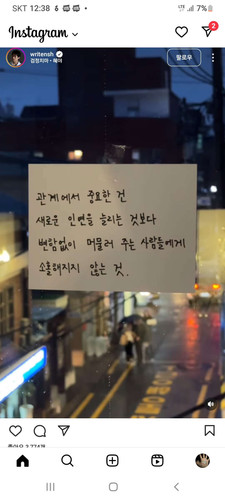 SKT 12:38
7%
Instagram
2
writtensh
검정치마 • 혜야
팔로우
관계에서 중요한 건
새로운 인연을 늘리는 것보다
변함없이 머물러 주는 사람들에게
소홀해지지 않는 것.